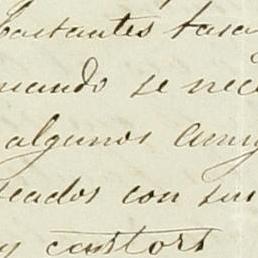 bastantes tasa
uando se nece
algunos amig
eados con sus
y castors